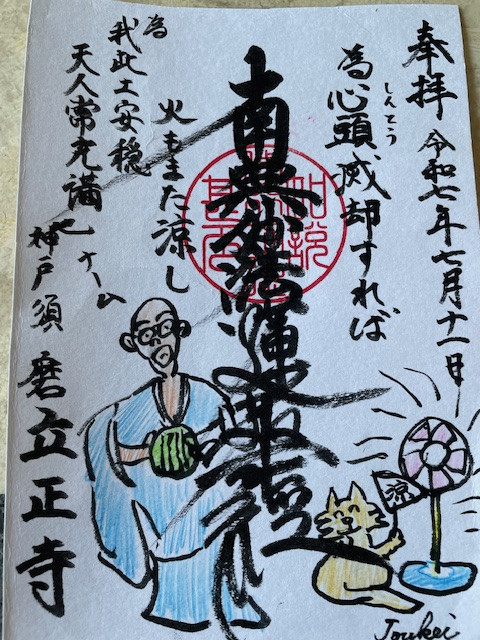 奉拝 令和七年七月十一日
為心頭威却すれば
しんとう
南無妙法蓮華経
火もまた涼し
為
我此土安穏
天人常充満
神戸須磨立正寺
涼
Joukei